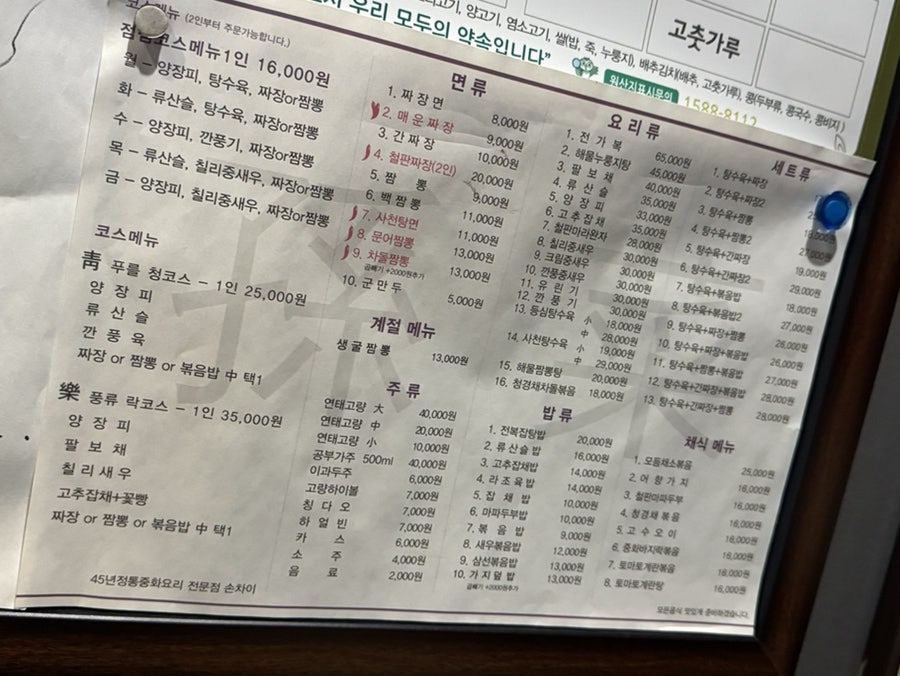 우리 모두의 약속입니다"
고기, 양고기, 염소고기, 쌀(밥, 죽, 누룽지), 배추김치(배추, 고춧가루), 콩(두부류, 콩국수, 콩비지)
고춧가루
원산지표시문의 1588-8112
코스메뉴 (2인부터 주문가능합니다.)
점심코스메뉴1인 16,000원
월 – 양장피, 탕수육, 짜장or짬뽕
화 – 류산슬, 탕수육, 짜장or짬뽕
수 – 양장피, 깐풍기, 짜장or짬뽕
목 – 류산슬, 칠리중새우, 짜장or짬뽕
금 – 양장피, 칠리중새우, 짜장or짬뽕
코스메뉴
靑 푸를 청코스 – 1인 25,000원
양 장 피
류 산 슬
깐 풍 육
짜장 or 짬뽕 or 볶음밥 中 택1
樂 풍류 락코스 – 1인 35,000원
양 장 피
팔 보 채
칠 리 새 우
고추잡채+꽃빵
짜장 or 짬뽕 or 볶음밥 中 택1
45년정통중화요리 전문점 손차이
면 류
1. 짜 장 면 8,000원
2. 매 운 짜 장 9,000원
3. 간 짜 장 10,000원
4. 철판짜장(2인) 20,000원
5. 짬 뽕 9,000원
6. 백 짬 뽕 11,000원
7. 사천탕면 11,000원
8. 문어짬뽕 13,000원
9. 차돌짬뽕 13,000원
곱빼기 +2000원추가
10. 군 만 두 5,000원
계절 메뉴
생 굴 짬 뽕 13,000원
주 류
연태고량 大 40,000원
연태고량 中 20,000원
연태고량 小 10,000원
공부가주 500ml 40,000원
이과두주 6,000원
고량하이볼 7,000원
칭 다 오 7,000원
하 얼 빈 7,000원
카 스 6,000원
소 주 4,000원
음 료 2,000원
요 리 류
1. 전 가 복 65,000원
2. 해물누룽지탕 45,000원
3. 팔 보 채 40,000원
4. 류 산 슬 35,000원
5. 양 장 피 33,000원
6. 고 추 잡 채 35,000원
7. 철판마라완자 28,000원
8. 칠리중새우 30,000원
9. 크림중새우 30,000원
10. 깐풍중새우 30,000원
11. 유 린 기 30,000원
12. 깐 풍 기 30,000원
13. 등심탕수육 小 18,000원
中 28,000원
14. 사천탕수육 小 19,000원
中 29,000원
15. 해물짬뽕탕 20,000원
16. 청경채차돌볶음 18,000원
밥 류
1. 전복잡탕밥 20,000원
2. 류 산 슬 밥 16,000원
3. 고추잡채밥 14,000원
4. 라 조 육 밥 14,000원
5. 잡 채 밥 10,000원
6. 마파두부밥 10,000원
7. 볶 음 밥 9,000원
8. 새우볶음밥 12,000원
9. 삼선볶음밥 13,000원
10. 가 지 덮 밥 13,000원
곱빼기 +2000원추가
세 트 류
1. 탕수육+짜장
2. 탕수육+짜장2
3. 탕수육+짬뽕 18,000원
4. 탕수육+짬뽕2 27,000원
5. 탕수육+간짜장 19,000원
6. 탕수육+간짜장2 29,000원
7. 탕수육+볶음밥 18,000원
8. 탕수육+볶음밥2 27,000원
9. 탕수육+짜장+짬뽕 26,000원
10. 탕수육+짜장+볶음밥 26,000원
11. 탕수육+짬뽕+볶음밥 27,000원
12. 탕수육+간짜장+볶음밥 28,000원
13. 탕수육+간짜장+짬뽕 28,000원
채식 메뉴
1. 모듬채소볶음 25,000원
2. 어 향 가 지 16,000원
3. 철판마파두부 16,000원
4. 청경채 볶음 16,000원
5. 고 수 오 이 16,000원
6. 중화바지락볶음 16,000원
7. 토마토계란볶음 16,000원
8. 토마토계란탕 16,000원
모든음식 맛있게 준비하겠습니다.